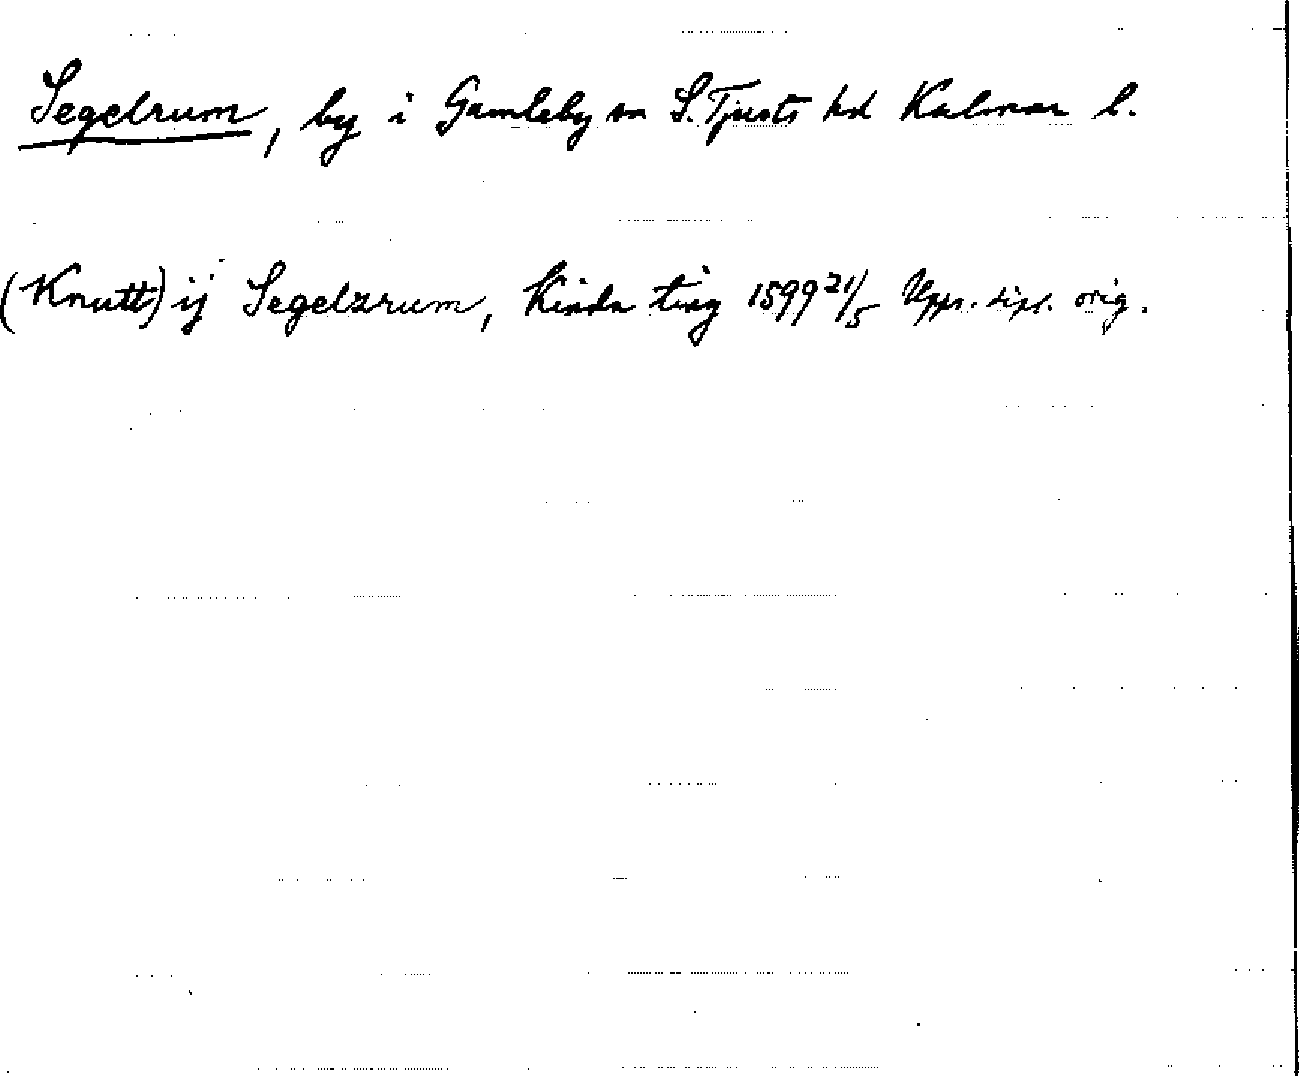 Segelrum, by i Gamleby sn S. Tjusts hd Kalmar l.
(Knutt) ij Segelzrum, Kinda ting 1599 21/5 Upps. dipl. orig.